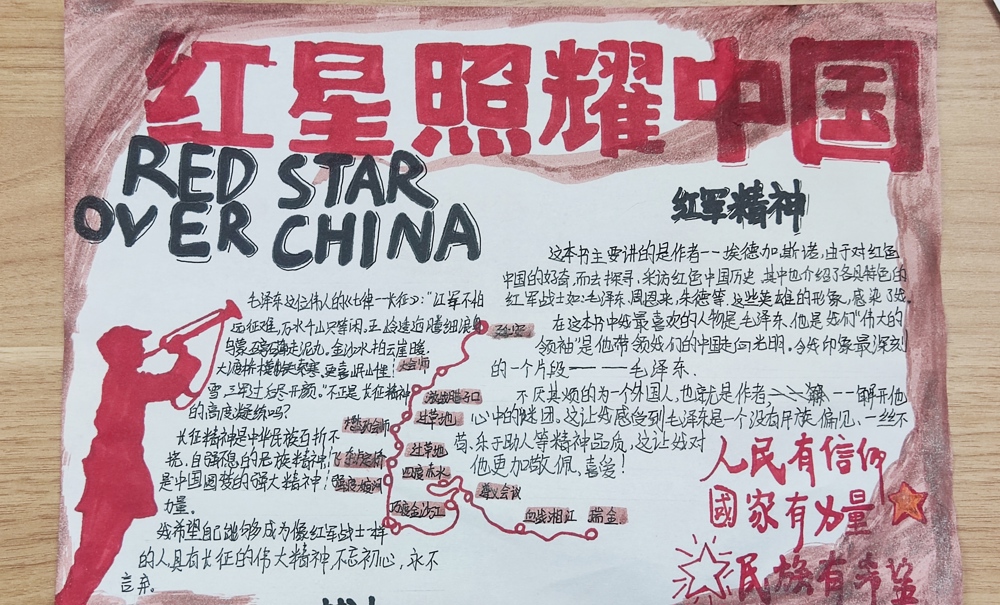 红星照耀中国
RED STAR
OVER CHINA
红军精神
这本书主要讲的是作者--埃德加.斯诺,由于对红色
中国的好奇,而去探寻、采访红色中国历史,其中也介绍了各具特色的
红军战士如:毛泽东、周恩来、朱德等,这些英雄的形象,感染了我。
在这本书中我最喜欢的人物是毛泽东,他是我们"伟大的
领袖"是他带领我们的中国走向光明。令我印象最深刻
的一个片段————毛泽东.
不厌其烦的为一个外国人,也就是作者,解--解开他
心中的谜团。这让我感受到毛泽东是一个没有民族偏见、一丝不
苟、乐于助人等精神品质,这让我对
他更加敬佩,喜爱!
毛泽东这位伟人的《七律--长征》:"红军不怕
远征难,万水千山只等闲.五岭逶迤腾细浪,
乌蒙磅礴走泥丸。金沙水拍云崖暖,
大渡桥横铁索寒.更喜岷山千里
雪,三军过后尽开颜。"不正是长征精神
的高度凝练吗?
长征精神是中华民族百折不
挠,自强不息的民族精神!
是中国
的强大精神
力量。
我希望自己能够成为像红军战士样
的人具有长征的伟大精神,不忘初心,永不
言弃。
大会师
激战腊子口
过草地
过草地
飞夺泸定桥
四渡赤水
遵义会议
巧渡金沙江
血战湘江
瑞金
人民有信仰
國家有力量
民族有希望